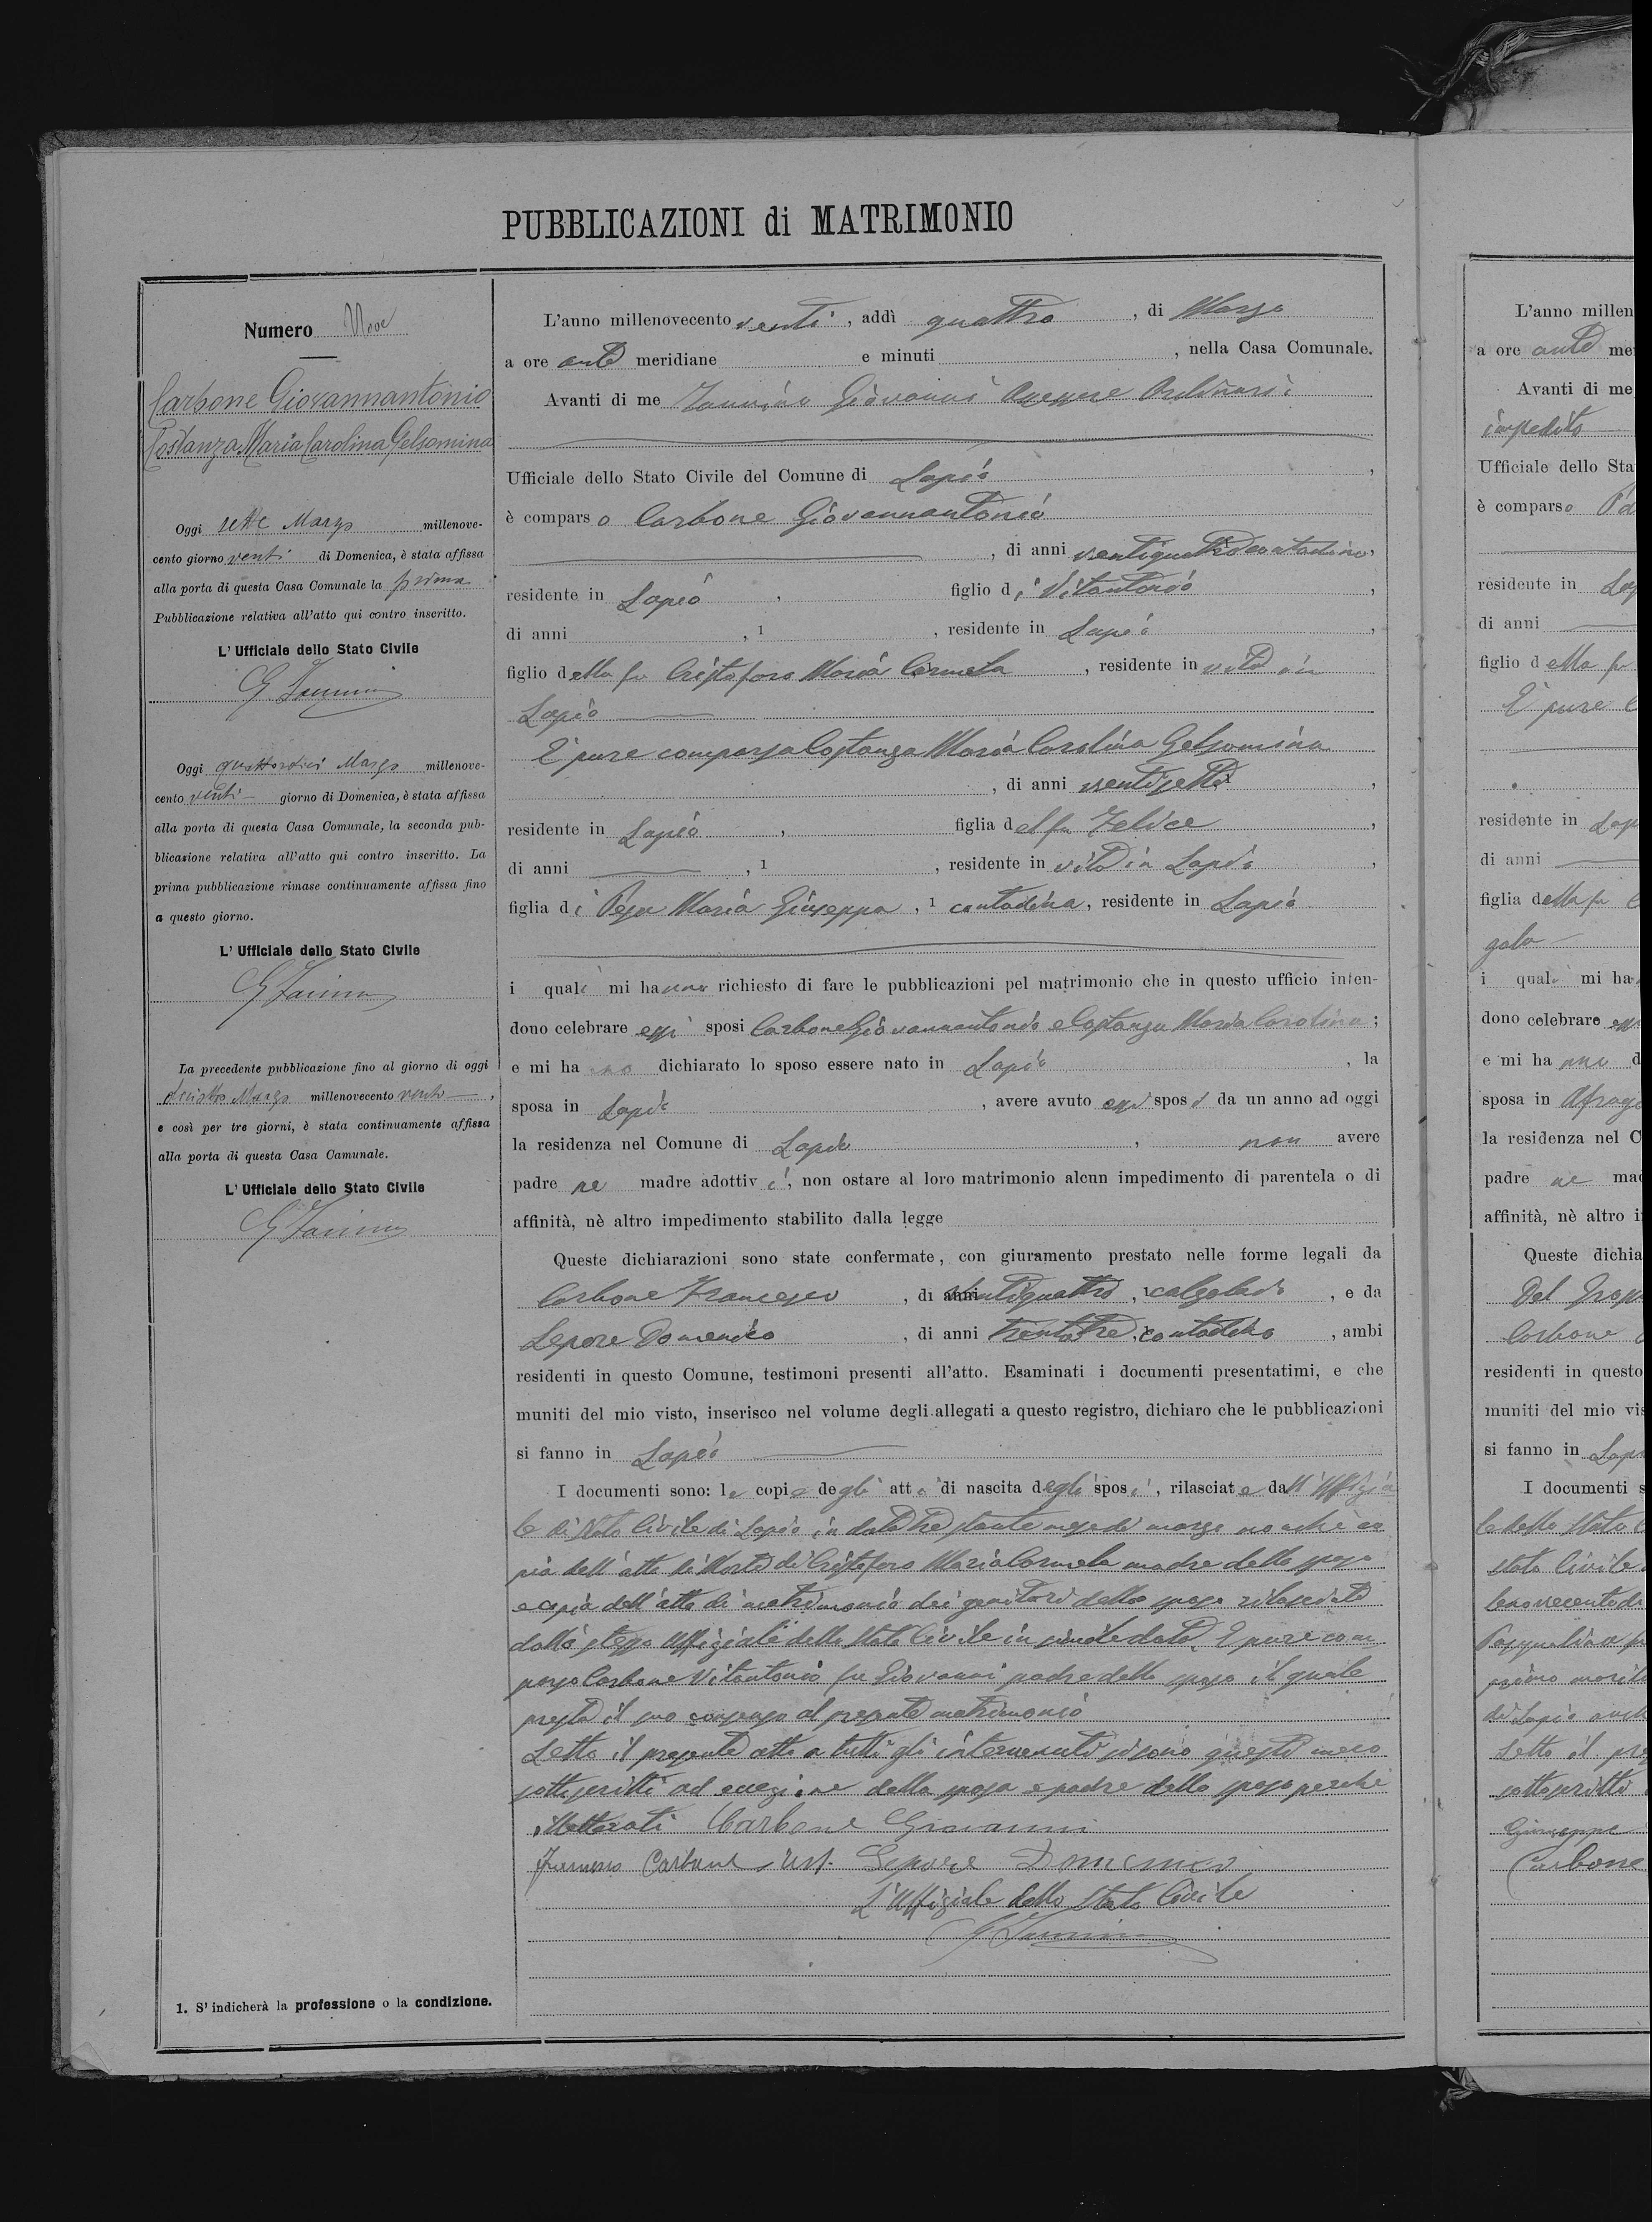 PUBBLICAZIONI di MATRIMONIO
Numero Nove
Carbone Giovannantonio
Costanza Maria Carolina Gelsomina
Oggi sette Marzo millenove-
cento giorno venti di Domenica, è stata affissa
alla porta di questa Casa Comunale la prima
Pubblicazione relativa all'atto qui contro inscritto.
L' Ufficiale dello Stato Civile
Oggi quattordici Marzo millenove-
cento venti giorno di Domenica, è stata affissa
alla porta di questa Casa Comunale, la seconda pub-
blicazione relativa all'atto qui contro inscritto. La
prima pubblicazione rimase continuamente affissa fino
a questo giorno.
L' Ufficiale dello Stato Civile
La precedente pubblicazione fino al giorno di oggi
Marzo millenovecento venti,
e così per tre giorni, è stata continuamente affissa
alla porta di questa Casa Camunale.
L' Ufficiale dello Stato Civile
1. S' indicherà la professione o la condizione.
L'anno millenovecento venti, addì quattro, di Marzo
a ore ante meridiane e minuti , nella Casa Comunale.
Avanti di me Giovanni Assessore
Ufficiale dello Stato Civile del Comune di Lapio,
è comparso Carbone Giovannantonio
, di anni ventiquattro contadino,
residente in Lapio, figlio di Vitantonio,
di anni , 1 , residente in Lapio,
figlio della fu Cristofaro Maria Carmela, residente in vita in
Lapio
E' pure comparsa Costanza Maria Carolina Gelsomina
, di anni ventisette,
residente in Lapio, figlia del fu Felice,
di anni , 1 , residente in vita in Lapio,
figlia di Maria Giuseppa, 1 contadina, residente in Lapio
i quali mi hanno richiesto di fare le pubblicazioni pel matrimonio che in questo ufficio inten-
dono celebrare essi sposi Carbone Giovannantonio e Costanza Maria Carolina;
e mi hanno dichiarato lo sposo essere nato in Lapio, la
sposa in Lapio, avere avuto essi sposi da un anno ad oggi
la residenza nel Comune di Lapio, non avere
padre ne madre adottivi, non ostare al loro matrimonio alcun impedimento di parentela o di
affinità, nè altro impedimento stabilito dalla legge
Queste dichiarazioni sono state confermate, con giuramento prestato nelle forme legali da
Carbone Francesco, di anni ventiquattro, 1 calzolaio, e da
Lepore Domenico, di anni trentatre, contadino, ambi
residenti in questo Comune, testimoni presenti all'atto. Esaminati i documenti presentatimi, e che
muniti del mio visto, inserisco nel volume degli allegati a questo registro, dichiaro che le pubblicazioni
si fanno in Lapio
I documenti sono: le copie degli atti di nascita degli sposi, rilasciate dall'Uffizia
le di Stato Civile di Lapio in data tre stante mese di marzo nonchè co
pia dell'atto di Morte di Cristofaro Maria Carmela madre dello sposo
e copia dell'atto di matrimonio dei genitori dello sposo rilasciate
dallo stesso Uffiziale dello Stato Civile in simile data. E pure com
parso Carbone Vitantonio fu Giovanni padre dello sposo il quale
presta il suo consenso al presente matrimonio
Letto il presente atto a tutti gli intervenuti si sono questi meco
sottoscritti ad eccezione della sposa e padre dello sposo perchè
illetterati Carbone Giovanni
Carbone Test. Lepore Domenico
L'Uffiziale dello Stato Civile
L'anno millen
a ore ante me
Avanti di me
impedito
Ufficiale dello Sta
è comparso
residente in
di anni
figlio della fu
E' pure
residente in
di anni
figlia della fu
i quali mi ha
dono celebrare
e mi ha nno d
sposa in
la residenza nel C
padre ne mad
affinità, nè altro i
Queste dichia
Carbone
residenti in questo
muniti del mio vis
si fanno in
I documenti s
le dello Stato
Stato Civile
Letto il
sottoscritti
Giuseppe
Carbone